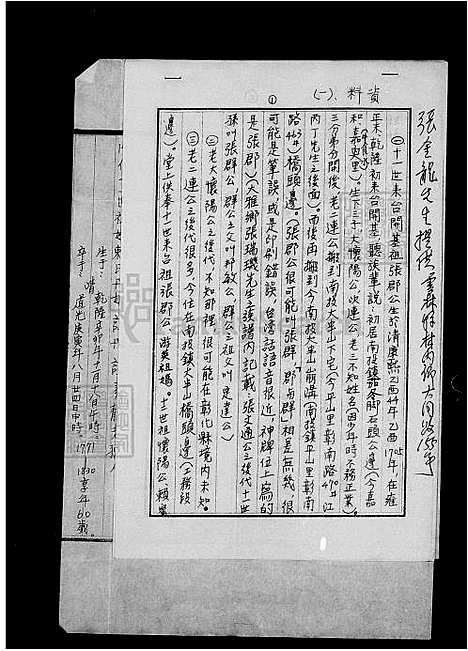 張金龍先生提供
資料(一)、
①
㊀十一世來台開基祖張郡公生於清康熙乙酉44年乙酉1705年,在雍
正末,乾隆初來台開基,聽族輩說:初居南投鎮茄苳腳石頭公邊(今嘉
和、嘉興里)。生下三子:大懷陽公,次連公,老三不知姓名(因少年時不務正業)。
三兄弟分開後,老二連公搬到南投大半山下宅(今平山里彰南路470號江
丙丁先生之後面)。而後再搬到今南投大半山崩溝(南投鎮平山里彰南
路463號)橋頭邊。(張郡公很可能是「張群」,「郡與群」相差無幾,很
可能是筆誤,或是印刷錯誤,台灣話語音很近)神牌位上寫的
是(張郡)。(大雅鄉張瑞璣先生之族譜內記載:張文通公之後代十一世
孫叫張群公,群公之父叫邦敏公,群公之祖父叫廷達公)
㊁老大懷陽公之後代,不知那裡,很可能在彰化縣境內未知。
㊂老二連公之後代很多,今住在南投鎮大半山橋頭邊(工務段
邊)。堂上供奉十一世來台祖張郡公,游英祖媽。十二世祖懷陽公賴
生于:乾隆辛卯年十一月十八日午時。1771
卒于:清道光庚寅年八月廿四日申時。1830享年60歲